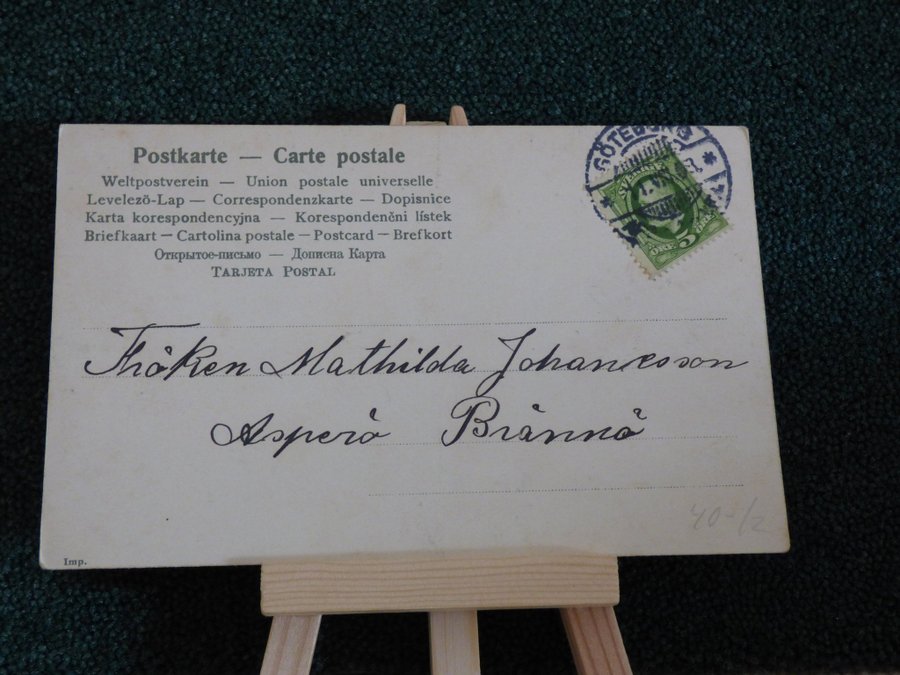 Postkarte — Carte postale
Weltpostverein — Union postale universelle
Levelező-Lap — Correspondenzkarte — Dopisnice
Karta korespondencyjna — Korespondenčni lístek
Briefkaart — Cartolina postale — Postcard — Brefkort
Открытое-письмо — Дописна Карта
TARJETA POSTAL
GÖTEBORG
SVERIGE
5
Fröken Mathilda Johanesson
Asperö Brännö
40-/2
Imp.